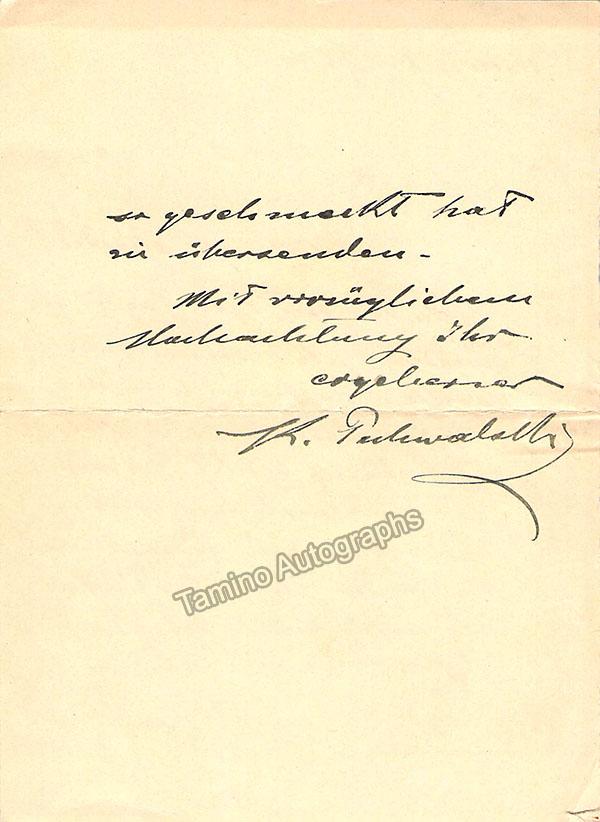 so geschmeckt hat
zu übersenden.
Mit vorzüglichem
Hochachtung Ihr
ergebener
K.
Tamino Autographs